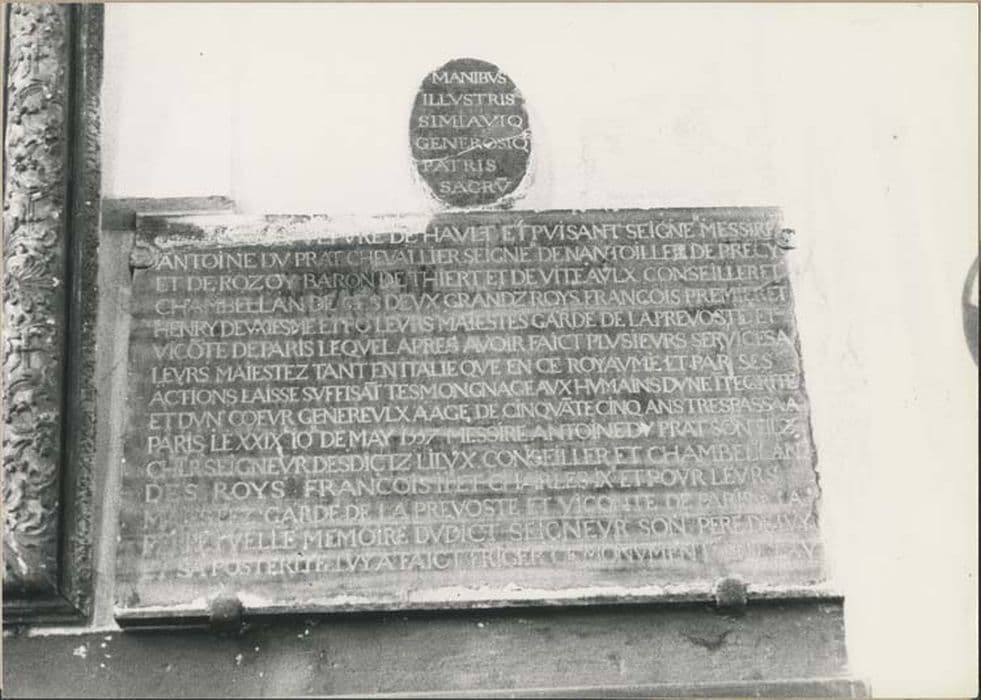 MANIBVS
ILLVSTRIS
SIMI AVI Q
GENEROSIQ
PATRIS
SACRV̄
DE HAVLT ET PVISANT SEIGNE MESSIRE
ANTOINE DV PRAT CHEVALLIER SEIGNE DE NANTOILLET DE PRECY
ET DE ROZOY BARON DE THIERT ET DE VITEAVLX CONSEILLER ET
CHAMBELLAN DE CES DEVX GRANDZ ROYS FRANCOIS PREMIER ET
HENRY DEVXIESME ET POR LEVRS MAIESTES GARDE DE LA PREVOSTE ET
VICŌTE DE PARIS LEQVEL APRES AVOIR FAICT PLVSIEVRS SERVICES A
LEVRS MAIESTEZ TANT EN ITALIE QVE EN CE ROYAVME ET PAR SES
ACTIONS LAISSE SVFFISĀT TESMONGNAGE AVX HVMAINS DVNE ĪTEGRITE
ET DVN COEVR GENEREVLX A AGE DE CINQVĀTE CINQ ANS TRESPASSA A
PARIS LE XXIX IO DE MAY 1557 MESSIRE ANTOINE DV PRAT SON FILZ
CHLR SEIGNEVR DESDICTZ LILVX CONSEILLER ET CHAMBELLAN
DES ROYS FRANCOIS II ET CHARLES IX ET POVR LEVRS
GARDE DE LA PREVOSTE ET VICONTE DE PARIS A LA
MEMOIRE DVDICT SEIGNEVR SON PERE DE LVY
SA POSTERITE LVY A FAICT ERIGER CE MONVMENT